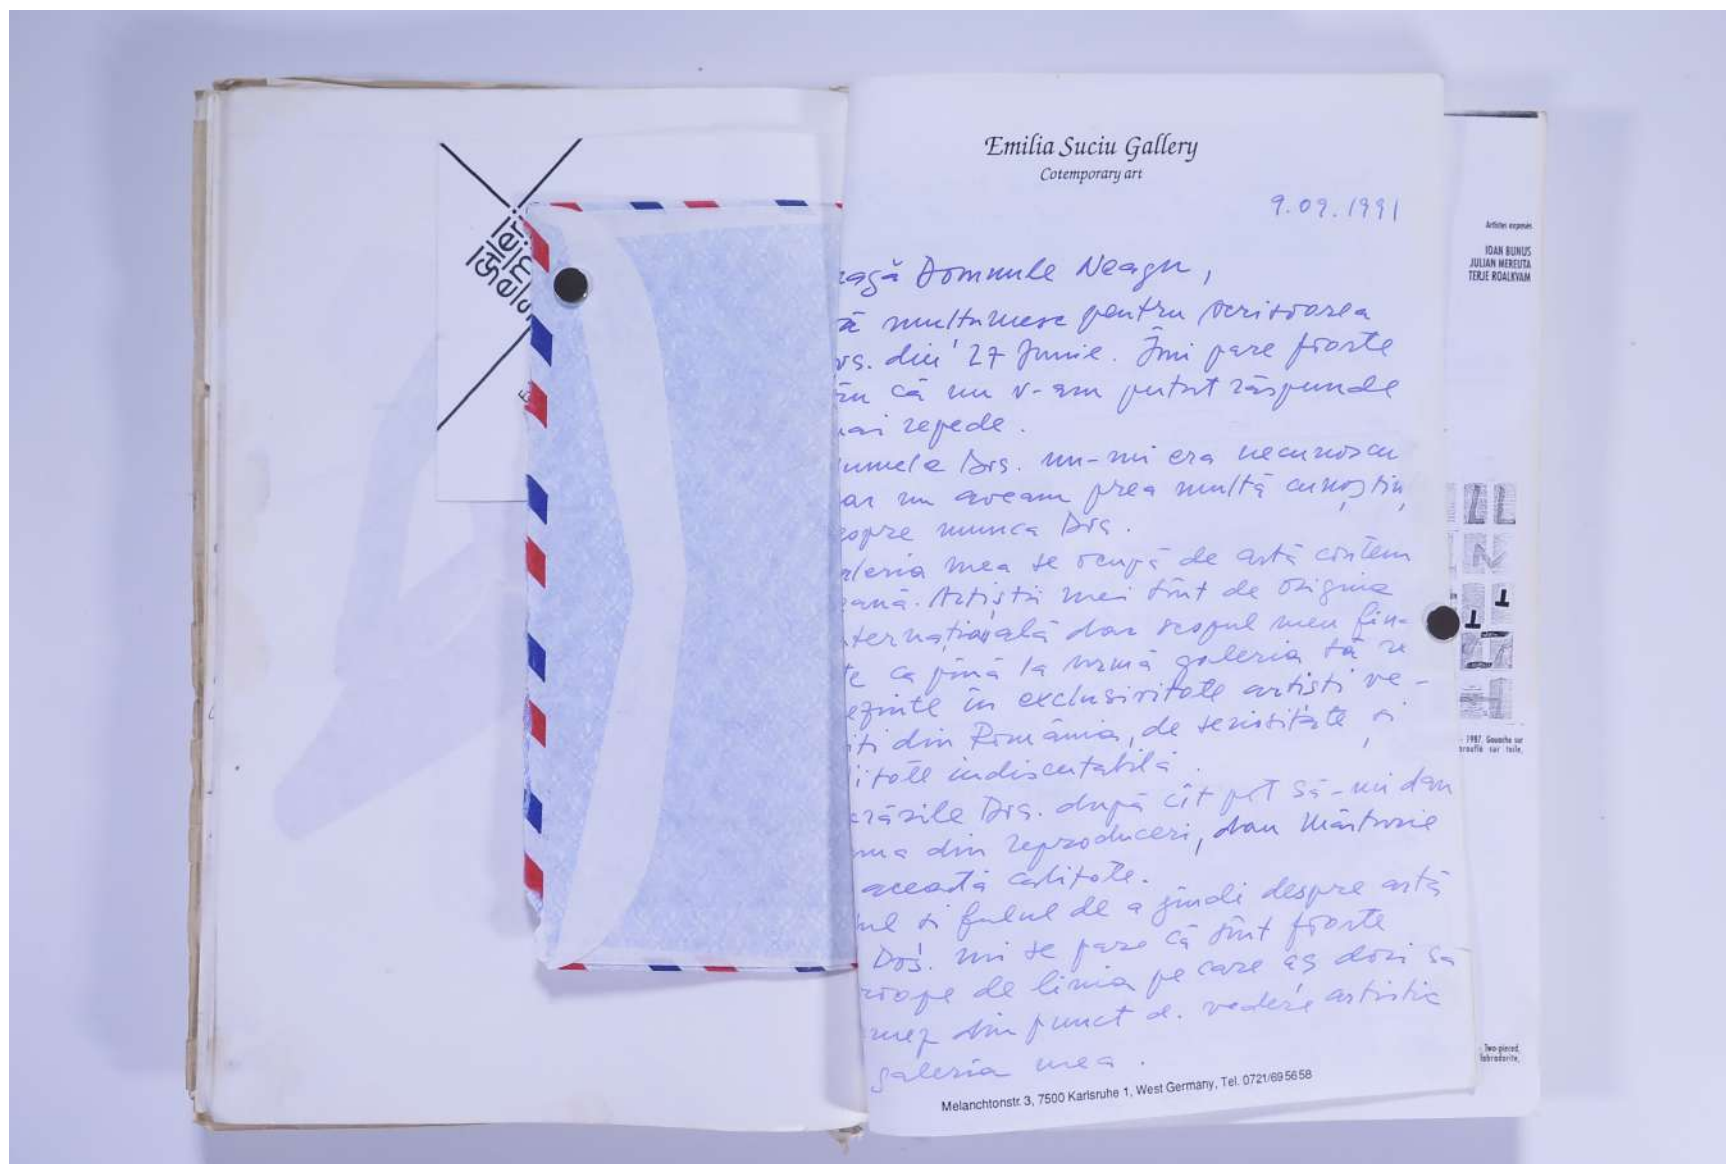 Galerie
Emilia Suciu Gallery
Cotemporary art
9.09.1991
ragă Domnule Neagu,
ă multumesc pentru scrisoarea
vs. din 27 Junie. Îmi pare foarte
ău că nu v-am putut răspunde
ai repede.
umele Dvs. nu-mi era necunoscu
ar nu aveam prea multă cunoștin
espre munca Dvs.
aleria mea se ocupă de artă contem
ană. Artiștii mei sînt de origine
nternațională dar scopul meu fin-
e ca pînă la urmă galeria să re
ezinte în exclusivitate artisti ve-
iti din România, de seriositate și
litate indiscutabilă.
crările Dvs. după cît pot să-mi dau
ma din reproduceri, dau mărturie
această calitate.
ul si felul de a gîndi despre artă
Dvs. mi se pare că sînt foarte
roape de linia pe care aș dori să
mez din punct d. vedere artistic
galeria mea.
Melanchtonstr. 3, 7500 Karlsruhe 1, West Germany, Tel. 0721/695658
Artistes exposés
IOAN BUNUS
JULIAN MEREUTA
TERJE ROALKVAM
- 1987, Gouache sur
marouflé sur toile,
- Two-pieced,
labradorite,